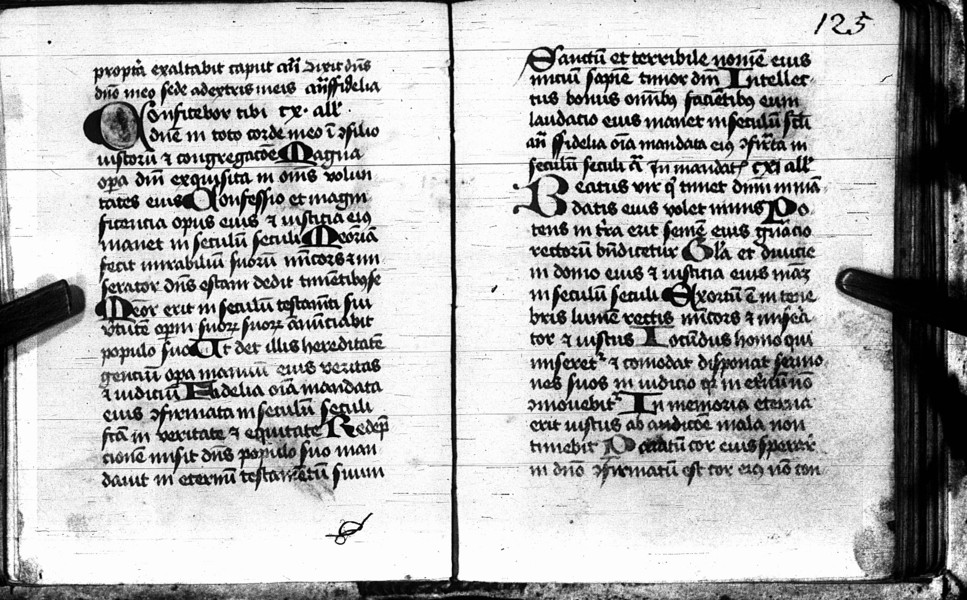 propt̄a exaltabit caput añ Dixit dn̄s
dn̄o meo sede a dextris meis an̄ ffidelia
Confitebor tibi cx. all'
dn̄e in toto corde meo ī ɔsilio
iustorū ⁊ congregacōe Magna
op̄a dn̄i exquisita in om̄s volun
tates eius Confessio et magni
ficencia opus eius ⁊ iusticia eiꝰ
manet in seculū seculi Meōriā
fecit mirabiliū suorū mīcors ⁊ mi
serator dn̄s escam dedit timētibꝰ se
Meōr erit in seculū testamēti sui
v̄tutē op̄m suoꝝ suoꝝ ānūciabit
populo suo Ut det illis hereditatē
genciū op̄a manuū eius veritas
⁊ iudiciū Fidelia oīa mandata
eius ɔfirmata in seculū seculi
fc̄ā in veritate ⁊ equitate Redep̄
cionē misit dn̄s populo suo man
dauit in eternū testamētū suum
125
Sanctū et terribile nomē eius
iniciū sapiē timor dn̄i Intellec
tus bonus om̄ibꝰ faciētibꝰ eum
laudacio eius manet in seculū sc̄li
an̄ ffidelia oīa mandata eiꝰ ɔfir̄ta in
seculū seculi an̄ In mandat̄ cxi all'
Beatus vir q̄ timet dn̄m in mā
datis eius volet nimis Po
tens in t̄ra erit semē eius gn̄acio
rectorū bn̄dicetur Gl̄a et diuicie
in domo eius ⁊ iusticia eius man̄
in seculū seculi Exortū ē in tene
bris lumē rectis mīcors ⁊ misera
tor ⁊ iustus Iocūdus homo qui
miseret᷑ ⁊ comodat disponit sermo
nes suos in iudicio qr̄ in et̄nū nō
ɔmouebit᷑ In memoria eterna
erit iustus ab audicōe mala non
timebit Paratū cor eius sperare
in dn̄o ɔfirmatū est cor eiꝰ nō con